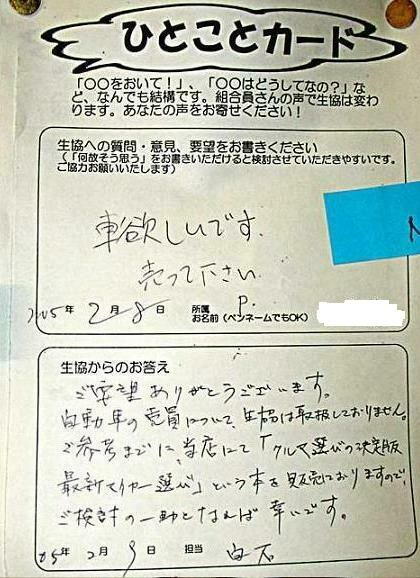 ひとことカード
「〇〇をおいて！」、「〇〇はどうしてなの？」な
ど、なんでも結構です。組合員さんの声で生協は変わ
ります。あなたの声をお寄せください！
生協への質問・意見、要望をお書きください
（「何故そう思う」をお書きいただけると検討させていただきやすいです。
ご協力お願いいたします）
車欲しいです。
売って下さい
2005年 2月8日 所属 P.
お名前（ペンネームでもOK）
生協からのお答え
ご要望ありがとうございます。
自動車の売買について、生協は取扱しておりません。
ご参考までに、当店にて「クルマ選びの決定版
最新マイカー選び」という本を販売しておりますので、
ご検討の一助となれば幸いです。
05年 2月9日 担当 白石